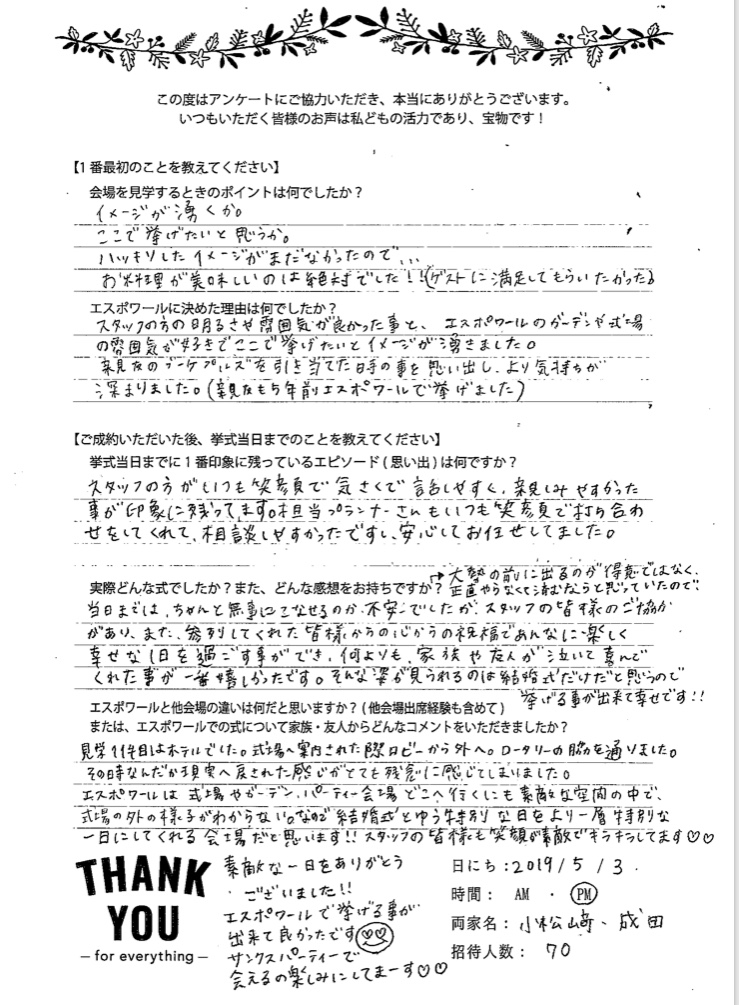 この度はアンケートにご協力いただき、本当にありがとうございます。
いつもいただく皆様のお声は私どもの活力であり、宝物です！
【1番最初のことを教えてください】
会場を見学するときのポイントは何でしたか？
イメージが湧くか。
ここで挙げたいと思うか。
ハッキリしたイメージがまだなかったので...
お料理が美味しいのは絶対でした!!(ゲストに満足してもらいたかった)
エスポワールに決めた理由は何でしたか？
スタッフの方の明るさや雰囲気が良かった事と、エスポワールのガーデンや式場
の雰囲気が好きでここで挙げたいとイメージが湧きました。
親友のブーケプルズを引き当てた時の事を思い出し、より気持ちが
深まりました。(親友も5年前エスポワールで挙げました)
【ご成約いただいた後、挙式当日までのことを教えてください】
挙式当日までに1番印象に残っているエピソード(思い出)は何ですか？
スタッフの方がいつも笑顔で気さくで話しやすく、親しみやすかった
事が印象に残ってます。担当プランナーさんもいつも笑顔で打ち合わ
せをしてくれて、相談しやすかったですし、安心してお任せしてました。
実際どんな式でしたか？また、どんな感想をお持ちですか？
→大勢の前に出るのが得意ではなく、
正直やらなくて済むならと思っていたので、
当日までは、ちゃんと無事にこなせるのか不安でしたが、スタッフの皆様のご協力
があり、また、参列してくれた皆様からの心からの祝福であんなに楽しく
幸せな1日を過ごす事ができ、何よりも、家族や友人が泣いて喜んで
くれた事が一番嬉しかったです。そんな姿が見られるのは結婚式だけだと思うので
挙げる事が出来て幸せです!!
エスポワールと他会場の違いは何だと思いますか？(他会場出席経験も含めて)
または、エスポワールでの式について家族・友人からどんなコメントをいただきましたか？
見学1件目はホテルでした。式場へ案内された際ロビーから外へ。ロータリーの脇を通りました。
その時なんだか現実へ戻された感じがとても残念に感じてしまいました。
エスポワールは式場やガーデン、パーティー会場どこへ行くにも素敵な空間の中で、
式場の外の様子がわからない。なので結婚式とゆう特別な日をより一層特別な
一日にしてくれる会場だと思います!!スタッフの皆様も笑顔が素敵でキラキラしてます♡♡
THANK
YOU
– for everything –
素敵な一日をありがとう
ございました!!
エスポワールで挙げる事が
出来て良かったです
サンクスパーティーで
会えるの楽しみにしてまーす♡♡
日にち：2019/5/3
時間： AM ・ PM
両家名：小松崎、成田
招待人数：70